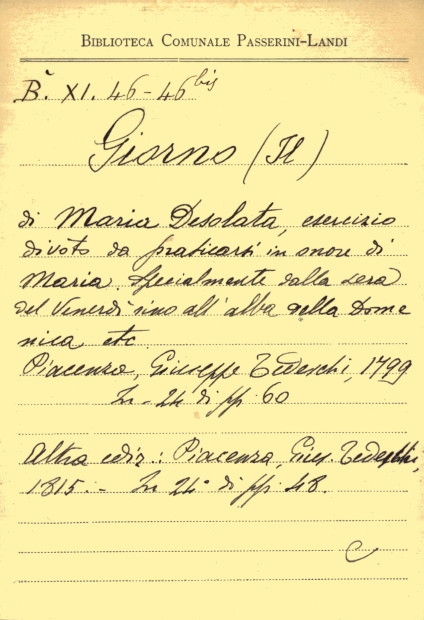 BIBLIOTECA COMUNALE PASSERINI-LANDI
B. XI. 46-46 bis
Giorno (Il)
di Maria Desolata, esercizio
divoto da praticarsi in onore di
Maria. Specialmente dalla sera
del Venerdì sino all'alba della Dome
nica etc
Piacenza, Giuseppe Tedeschi, 1799
In-24 di pp. 60
Altra ediz.: Piacenza, Gius. Tedeschi,
1815.- In 24° di pp. 48.
C